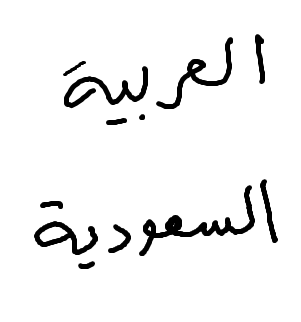 العربية
السعودية